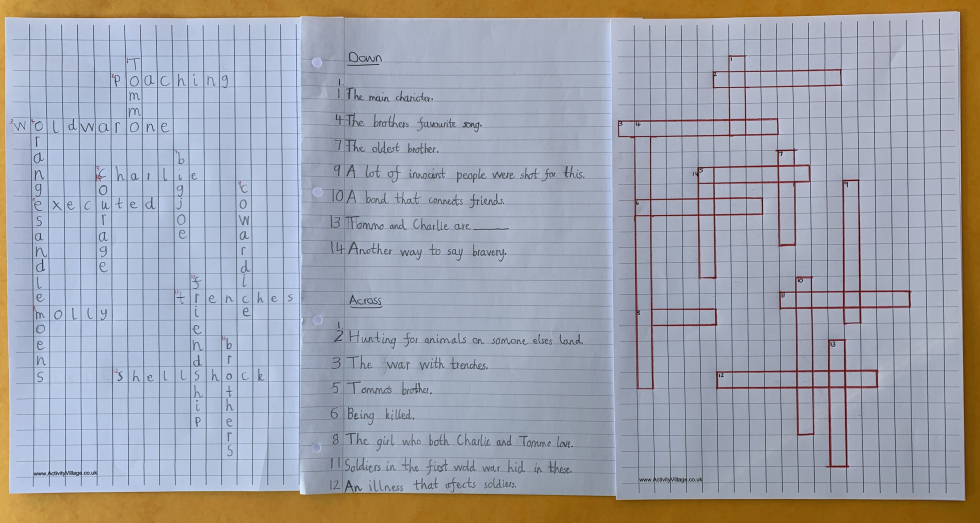 Tommo
Poaching
Woldwarone
orangesandlemoens
bigjoe
Charlie
courage
cowardice
executed
friendship
trenches
molly
brothers
shellshock
www.ActivityVillage.co.uk
Down
1 The main charicter.
4 The brothers favourite song.
7 The oldest brother.
9 A lot of innocent people were shot for this.
10 A bond that connects friends.
13 Tommo and Charlie are ______
14 Another way to say bravery.
Across
2 Hunting for animals on somone elses land.
3 The war with trenches.
5 Tommos brother.
6 Being killed.
8 The girl who both Charlie and Tommo love.
11 Soldiers in the first wold war hid in these.
12 An illness that afects soldiers.
1
2
3 4
7
5
14
9
6
10
11
8
13
12
www.ActivityVillage.co.uk